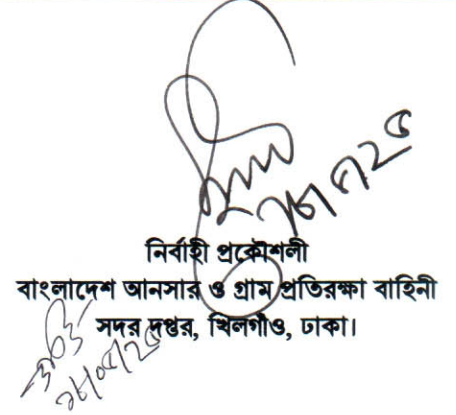 নির্বাহী প্রকৌশলী
বাংলাদেশ আনসার ও গ্রাম প্রতিরক্ষা বাহিনী
সদর দপ্তর, খিলগাঁও, ঢাকা।